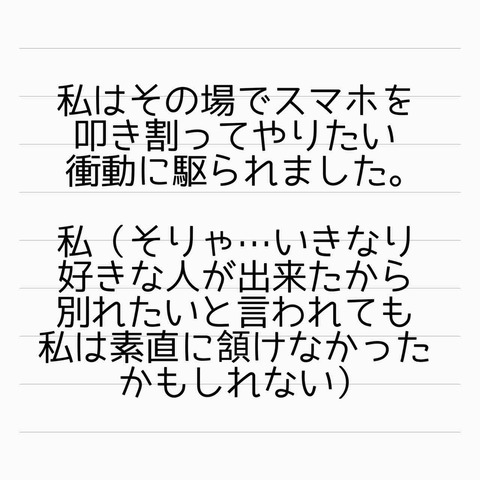 私はその場でスマホを
叩き割ってやりたい
衝動に駆られました。
私（そりゃ…いきなり
好きな人が出来たから
別れたいと言われても
私は素直に頷けなかった
かもしれない）